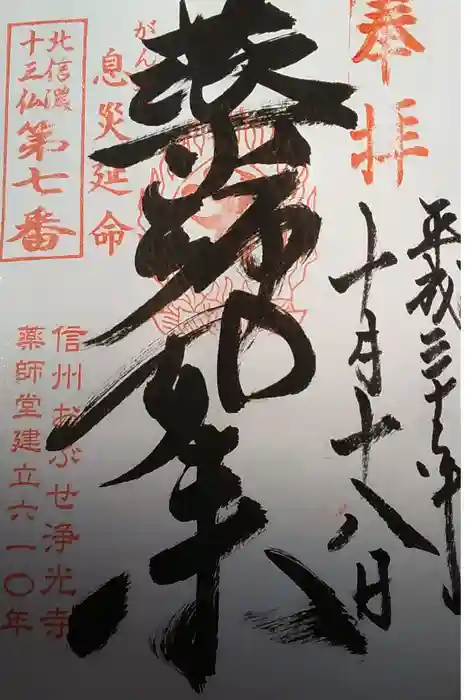 奉拝
平成三十年
十月十八日
薬師如来
がん
息災延命
北信濃
十三仏第七番
信州おぶせ浄光寺
薬師堂建立六一〇年